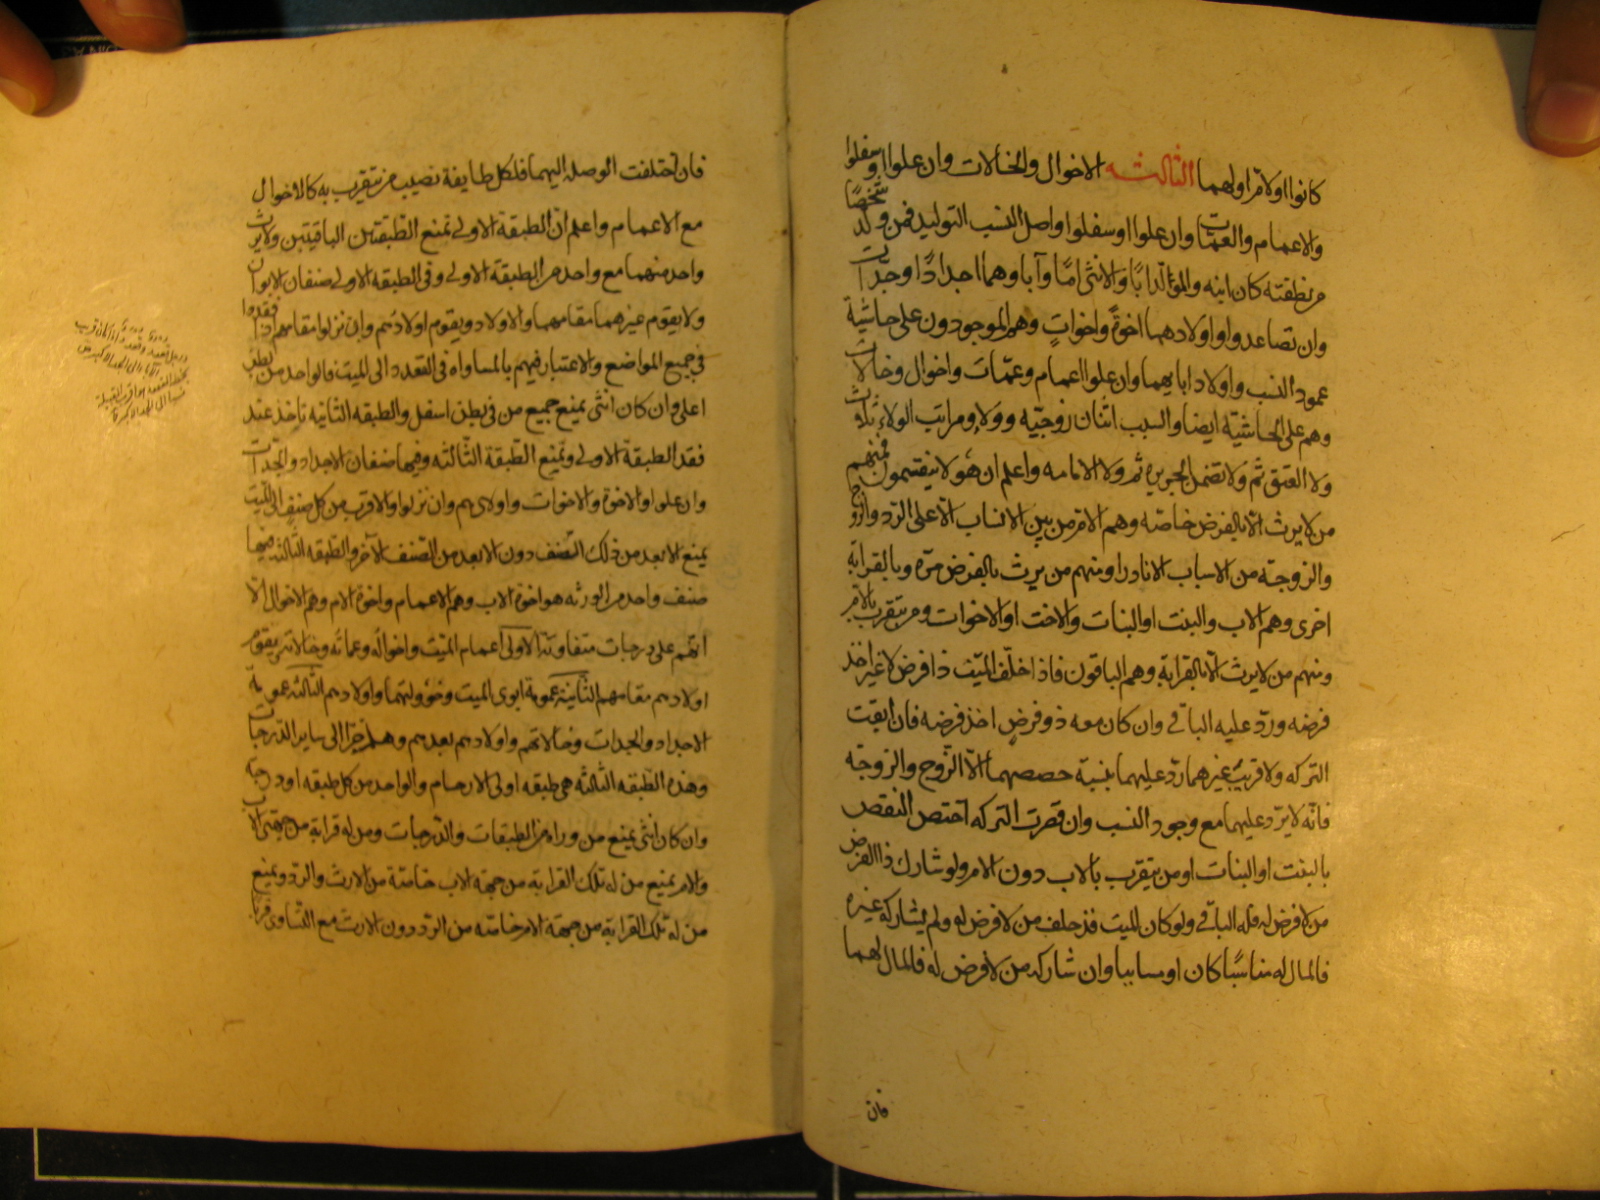 كانوا اولاد او لهما الثالثه الاخوال والخالات وان علوا او سفلوا
والاعمام والعمات وان علوا او سفلوا واصل النسب التوليد فمن ولد شخصا
من نطفته كان ابنه والمولد ابا والانثى اما وآباوهما اجدادا وجدات
وان تصاعدوا واولادهما اخوة واخوات وهم الموجودون على حاشية
عمود النسب واولاد ابايهما وان علوا اعمام وعمات واخوال وخالات
وهم على الحاشية ايضا والسبب اثنان زوجيه وولاء ومراتب الولاء ثلاث
ولا العتق ثم ولا تضمن الجريره ثم ولا الامامه واعلم ان هولا ينقسمون فمنهم
من لا يرث الا بالفرض خاصه وهم الام من بين الانساب الا على الرد والزوج
والزوجة من الاسباب الا نادرا ومنهم من يرث بالفرض مرة وبالقرابة
اخرى وهم الاب والبنت او البنات والاخت او الاخوات ومن يتقرب بالام
ومنهم من لا يرث الا بالقرابة وهم الباقون فاذا خلف الميت ذا فرض لا غير اخذ
فرضه ورد عليه الباقي وان كان معه ذو فرض اخذ فرضه فان ابقت
التركه ولا قريب غيرهما رد عليهما بنسبة حصصهما الا الزوج والزوجة
فانه لا يرد عليهما مع وجود النسب وان قصرت التركه اختص النقص
بالبنت او البنات او من يتقرب بالاب دون الام ولو شارك ذا الفرض
من لا فرض له فله الباقي ولو كان الميت قد خلف من لا فرض له ولم يشاركه غيره
فالمال له مناسبا كان او مساببا وان شاركه من لا فرض له فالمال لهما
فان
فان اختلفت الوصله اليهما فلكل طايفة نصيب من يتقرب به كالاخوال
مع الاعمام واعلم ان الطبقة الاولى تمنع الطبقتين الباقيتين ولا يرث
واحد منهما مع واحد من الطبقة الاولى وفي الطبقه الاولى صنفان الابوان
ولا يقوم غيرهما مقامهما والاولاد ويقوم اولادهم وان نزلوا مقامهم اذا فقدوا
في جميع المواضع والاعتبار فيهم بالمساواه في التعدد الى الميت فالواحد من بطن
اعلى وان كان انثى يمنع جميع من في بطن اسفل والطبقه الثانيه تاخذ عند
فقد الطبقة الاولى وتمنع الطبقة الثالثه وفيها صنفان الاجداد والجدات
وان علوا والاخوة والاخوات واولادهم وان نزلوا والاقرب من كل صنف الى الميت
يمنع الابعد من ذلك الصنف دون الابعد من الصنف الآخر والطبقه الثالثه فيها
صنف واحد من الورثه هو اخوة الاب وهم الاعمام واخوة الام وهم الاخوال الا
انهم على درجات متفاوته الاولى اعمام الميت واخواله وعماته وخالاته يقوم
اولادهم مقامهم الثانيه عمومة ابوى الميت وخؤولتهما واولادهم الثالثه عمومة
الاجداد والجدات وخالاتهم واولادهم بعدهم وهلم جرا الى ساير الدرجات
وهذه الطبقه الثالثه هي طبقه اولى الارحام والواحد من كل طبقه او درجة
وان كان انثى يمنع من وراه من الطبقات والدرجات ومن له قرابة من جهتى الاب
والام يمنع من له تلك القرابة من جهة الاب خاصة من الارث والرد ويمنع
من له تلك القرابة من جهة الام خاصته من الرد دون الارث مع التساوى قربا